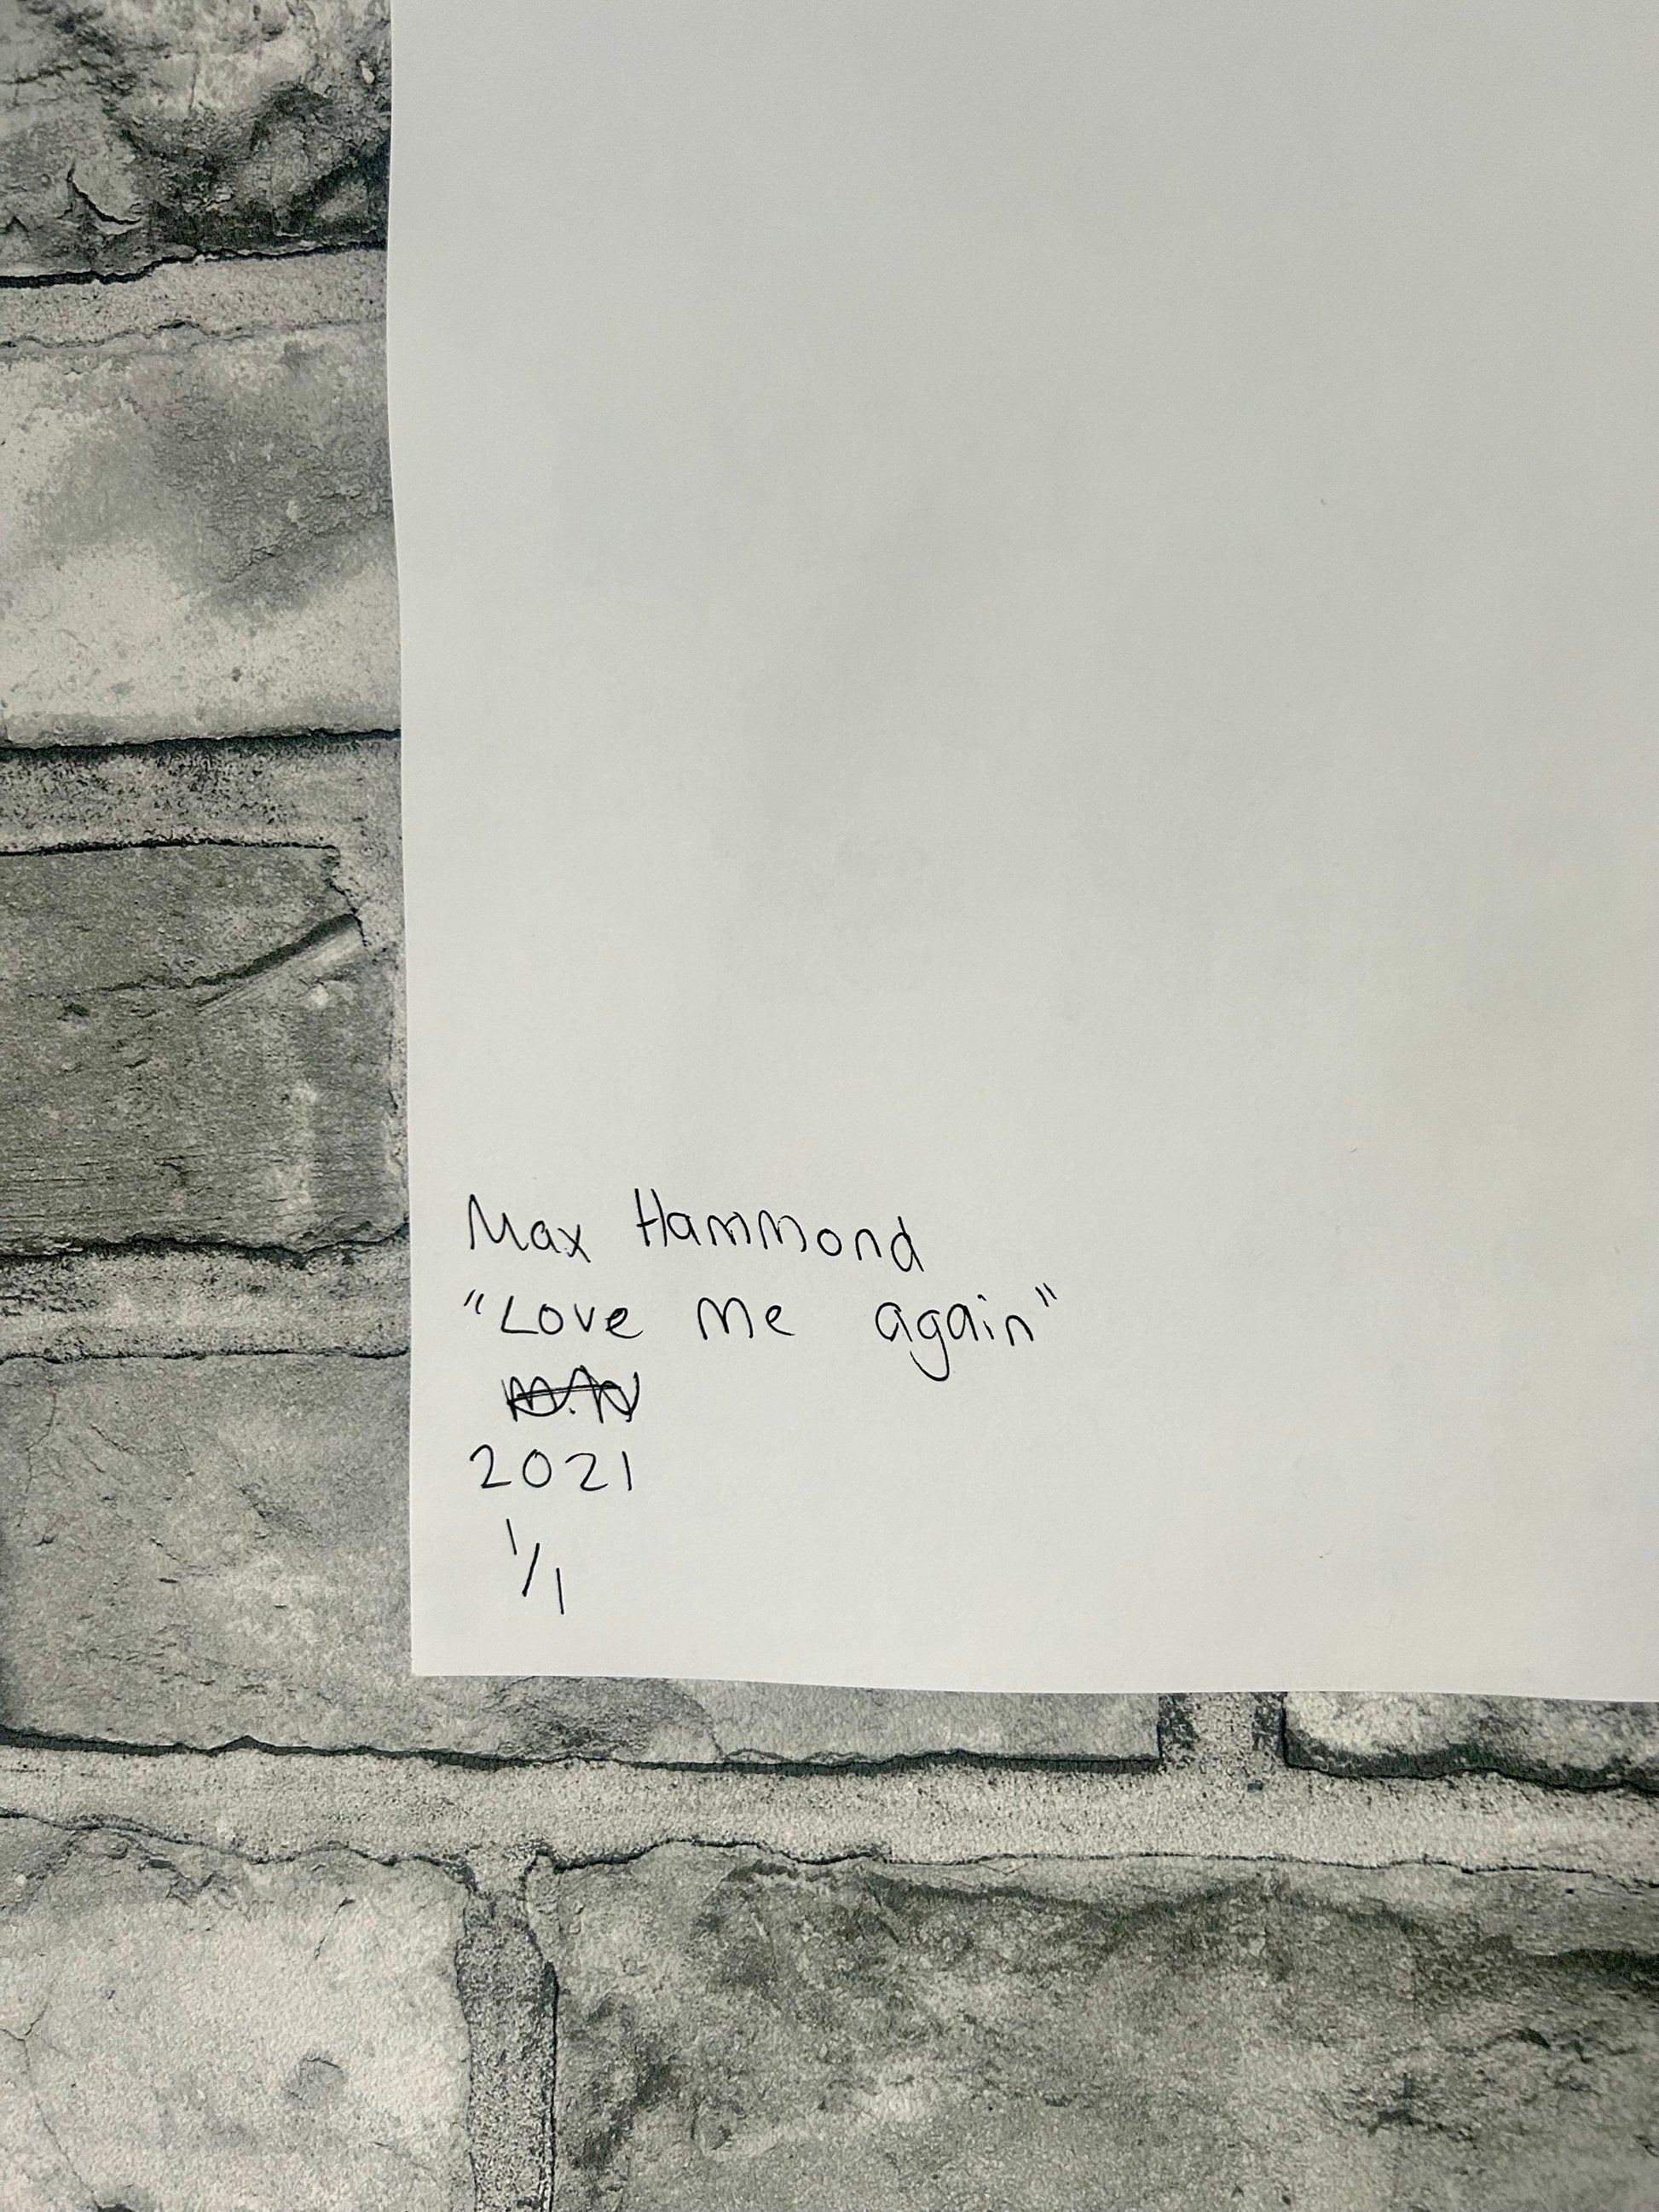 Max Hammond
"Love me again"
2021
1/1